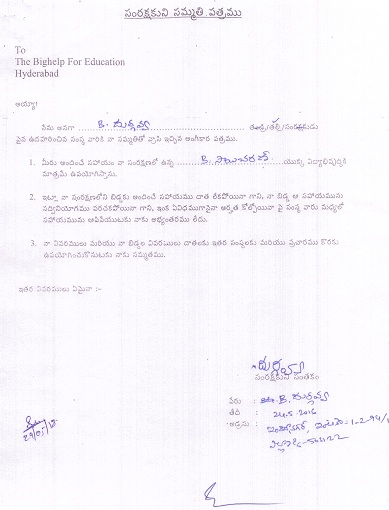 సంరక్షకుని సమ్మతి పత్రము
To
The Bighelp For Education
Hyderabad
అయ్యా!
నేను అనగా B. దుర్గవ్వ తండ్రి/తల్లి/సంరక్షకుడు
పైన ఉదహరించిన సంస్థ వారికి నా సమ్మతితో వ్రాసి ఇచ్చిన అంగీకార పత్రము.
1. మీరు అందించే సహాయం నా సంరక్షణలో ఉన్న B. సాయిచరణ్ యొక్క విద్యాభివృద్ధికి
మాత్రమే ఉపయోగిస్తాను.
2. ఇట్లు నా సంరక్షణలోని బిడ్డకు అందించే సహాయము దాత లేకపోయినా గాని, నా బిడ్డ ఆ సహాయమును
సద్వినియోగము పరచకపోయినా గాని, ఇంక ఏవిధముగానైనా అర్హత కోల్పోయినా పై సంస్థ వారు మధ్యలో
సహాయమును ఆపివేయుటకు నాకు అభ్యంతరము లేదు.
3. నా వివరములు మరియు నా బిడ్డల వివరములు దాతలకు ఇతర సంస్థలకు మరియు ప్రచారము కొరకు
ఉపయోగించుకొనుటకు నాకు సమ్మతము.
ఇతర వివరములు ఏమైనా :-
దుర్గవ్వ
సంరక్షకుని సంతకం
పేరు : B. దుర్గవ్వ
తేది : 24.5.2016
అడ్రసు :